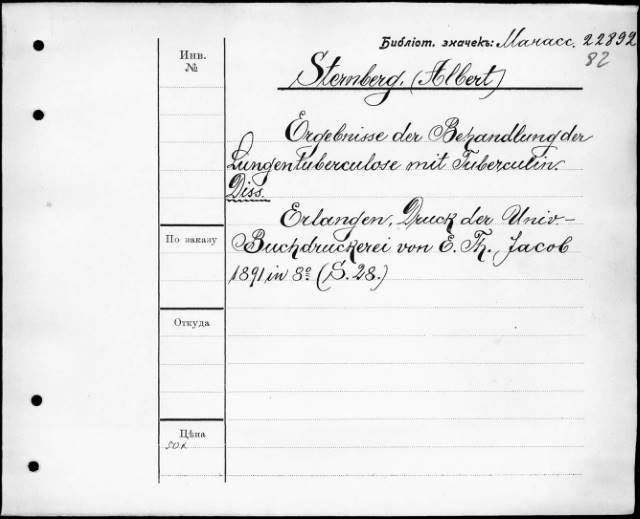 Библіот. значекъ: Манасс. 22892
82
Инв.
№
Sternberg, (Albert)
Ergebnisse der Behandlung der
Lungentuberculose mit Tuberculin.
Diss.
Erlangen, Druck der Univ.-
По заказу
Buchdruckerei von E. Th. Jacob
1891 in 8º (S. 28.)
Откуда
Цѣна
50к